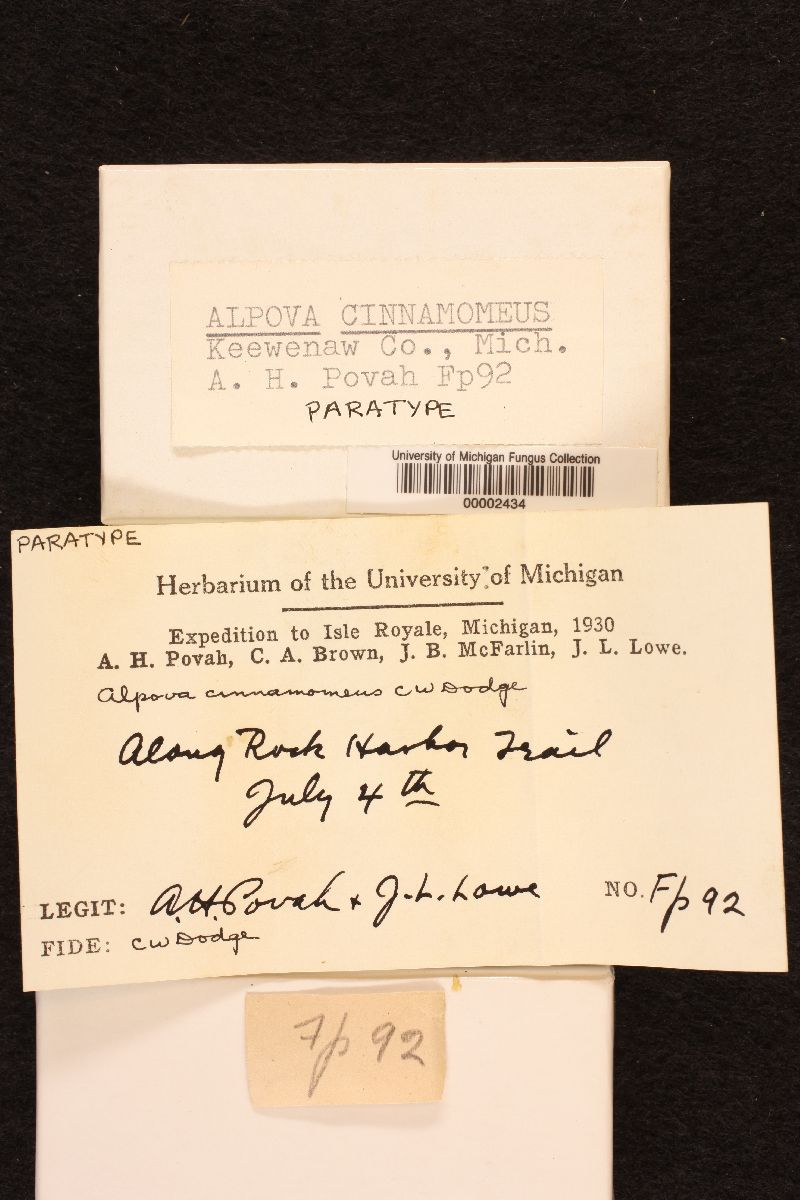 ALPOVA CINNAMOMEUS
Keewenaw Co., Mich.
A. H. Povah Fp92
PARATYPE
University of Michigan Fungus Collection
00002434
PARATYPE
Herbarium of the University of Michigan
Expedition to Isle Royale, Michigan, 1930
A. H. Povah, C. A. Brown, J. B. McFarlin, J. L. Lowe.
Alpova cinnamomeus CW Dodge
Along Rock Harbor Trail
July 4th
LEGIT: A.H. Povah + J.L. Lowe NO. Fp 92
FIDE: CW Dodge
Fp 92